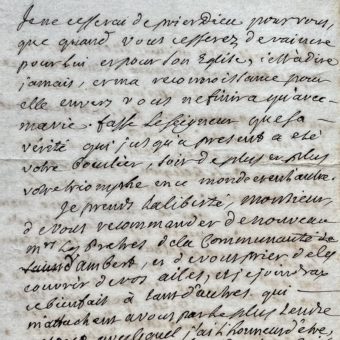 Je ne cesserai de prier dieu pour vous,
que quand vous cesserez de vaincre
pour lui et pour son Eglise, c'est a dire
jamais, et ma reconnoissance pour
elle envers vous ne finira qu'avec
ma vie. fasse le seigneur que sa
verité qui jusqu'a present a eté
votre bouclier, soit de plus en plus
votre triomphe en ce monde et en l'autre.
Je prends la liberté, monsieur,
de vous recommander de nouveau
mrs Les Pretres de la Communauté de
d'ambert, et de vous prier de les
couvrir de vos ailes, et je joindrai
ce bienfait a tant d'autres qui
m'attachent a vous par le plus tendre
avec lequel j'ai l'honneur d'etre,